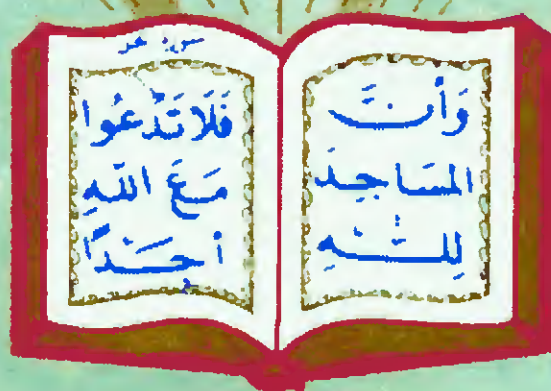 وَأَنَّ
المَسَاجِدَ
لِلَّهِ
فَلَا تَدْعُوا
مَعَ اللَّهِ
أَحَدًا